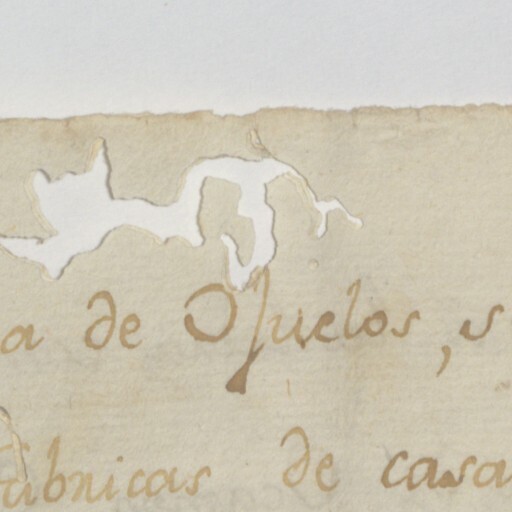 a de Ojuelos, s
fabricas de casa